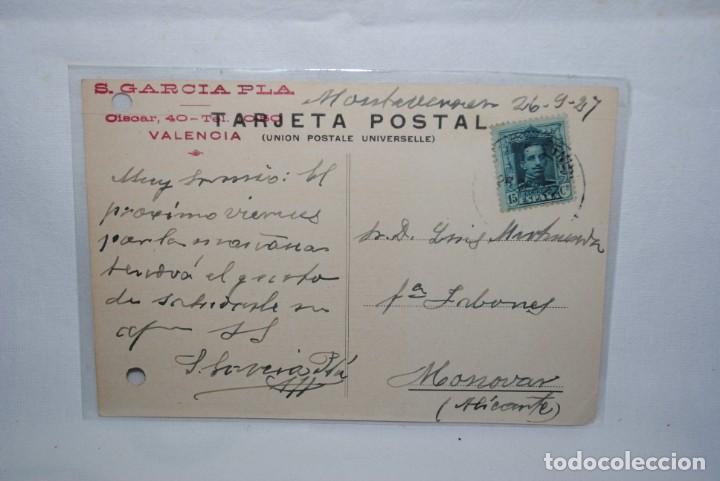 S. GARCIA PLA
Ciscar, 40 - Tel.
VALENCIA
26-9-27
TARJETA POSTAL
(UNION POSTALE UNIVERSELLE)
15
Muy Sr mio: El
proximo viernes
por la mañana
tendrá el gusto
de saludarle su
afmo SS
S. Garcia Plá
Sr. D. Luis
fca Jabones
Monovar
(Alicante)
todocoleccion.net